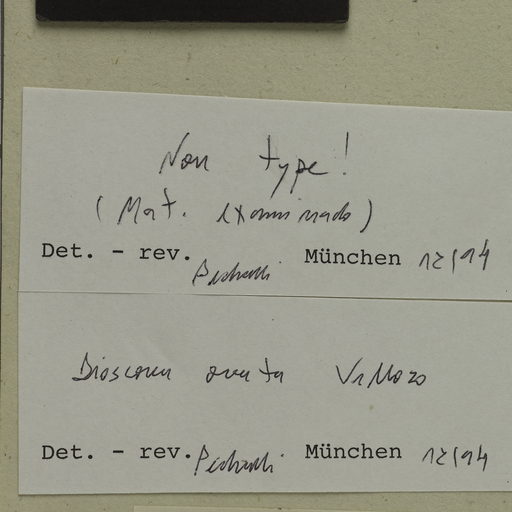 Non type!
(Mat. examinado)
Det. - rev. Pedralli München 12/94
Dioscorea ovata Vellozo
Det. - rev. Pedralli München 12/94